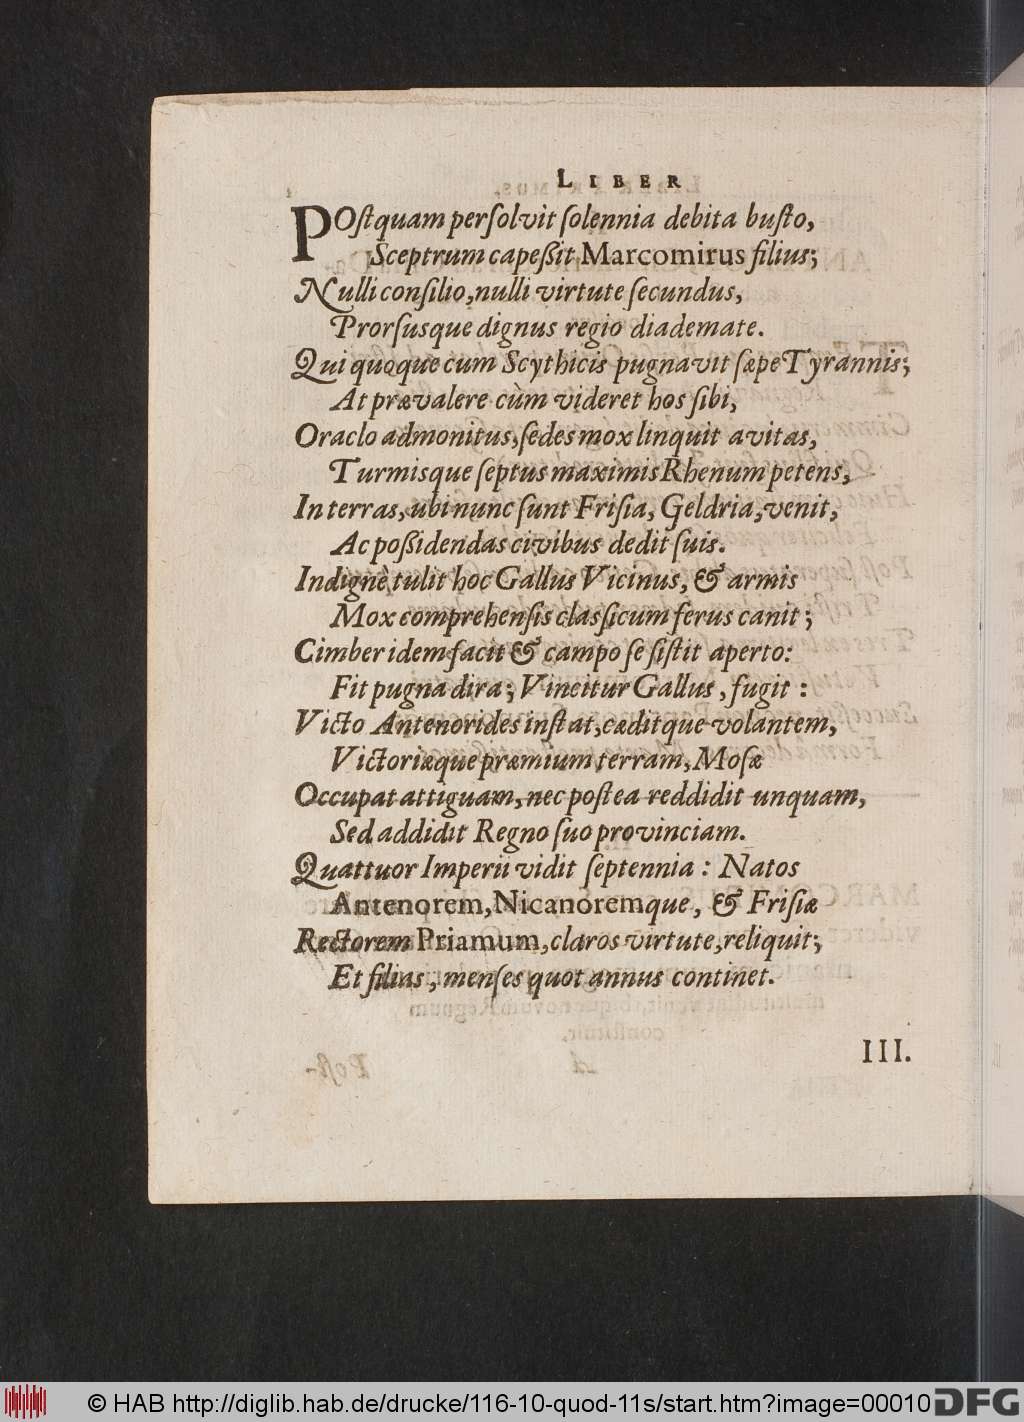 LIBER
POſtquam perſolvit ſolennia debita buſto,
Sceptrum capeßit Marcomirus filius;
Nulli conſilio, nulli virtute ſecundus,
Prorſusque dignus regio diademate.
Qui quoque cum Scythicis pugnavit ſæpe Tyrannis;
At prævalere cùm videret hos ſibi,
Oraclo admonitus, ſedes mox linquit avitas,
Turmisque ſeptus maximis Rhenum petens,
In terras, ubi nunc ſunt Friſia, Geldria, venit,
Ac poßidendas civibus dedit ſuis.
Indignè tulit hoc Gallus Vicinus, & armis
Mox comprehenſis claſſicum ferus canit;
Cimber idem facit & campo ſe ſiſtit aperto:
Fit pugna dira; Vincitur Gallus, fugit:
Victo Antenorides inſtat, cæditque volantem,
Victoriæque præmium terram, Moſæ
Occupat attiguam, nec poſtea reddidit unquam,
Sed addidit Regno ſuo provinciam.
Quattuor Imperii vidit ſeptennia: Natos
Antenorem, Nicanoremque, & Friſiæ
Rectorem Priamum, claros virtute, reliquit;
Et filias, menſes quot annus continet.
III.
© HAB http://diglib.hab.de/drucke/116-10-quod-11s/start.htm?image=00010
DFG